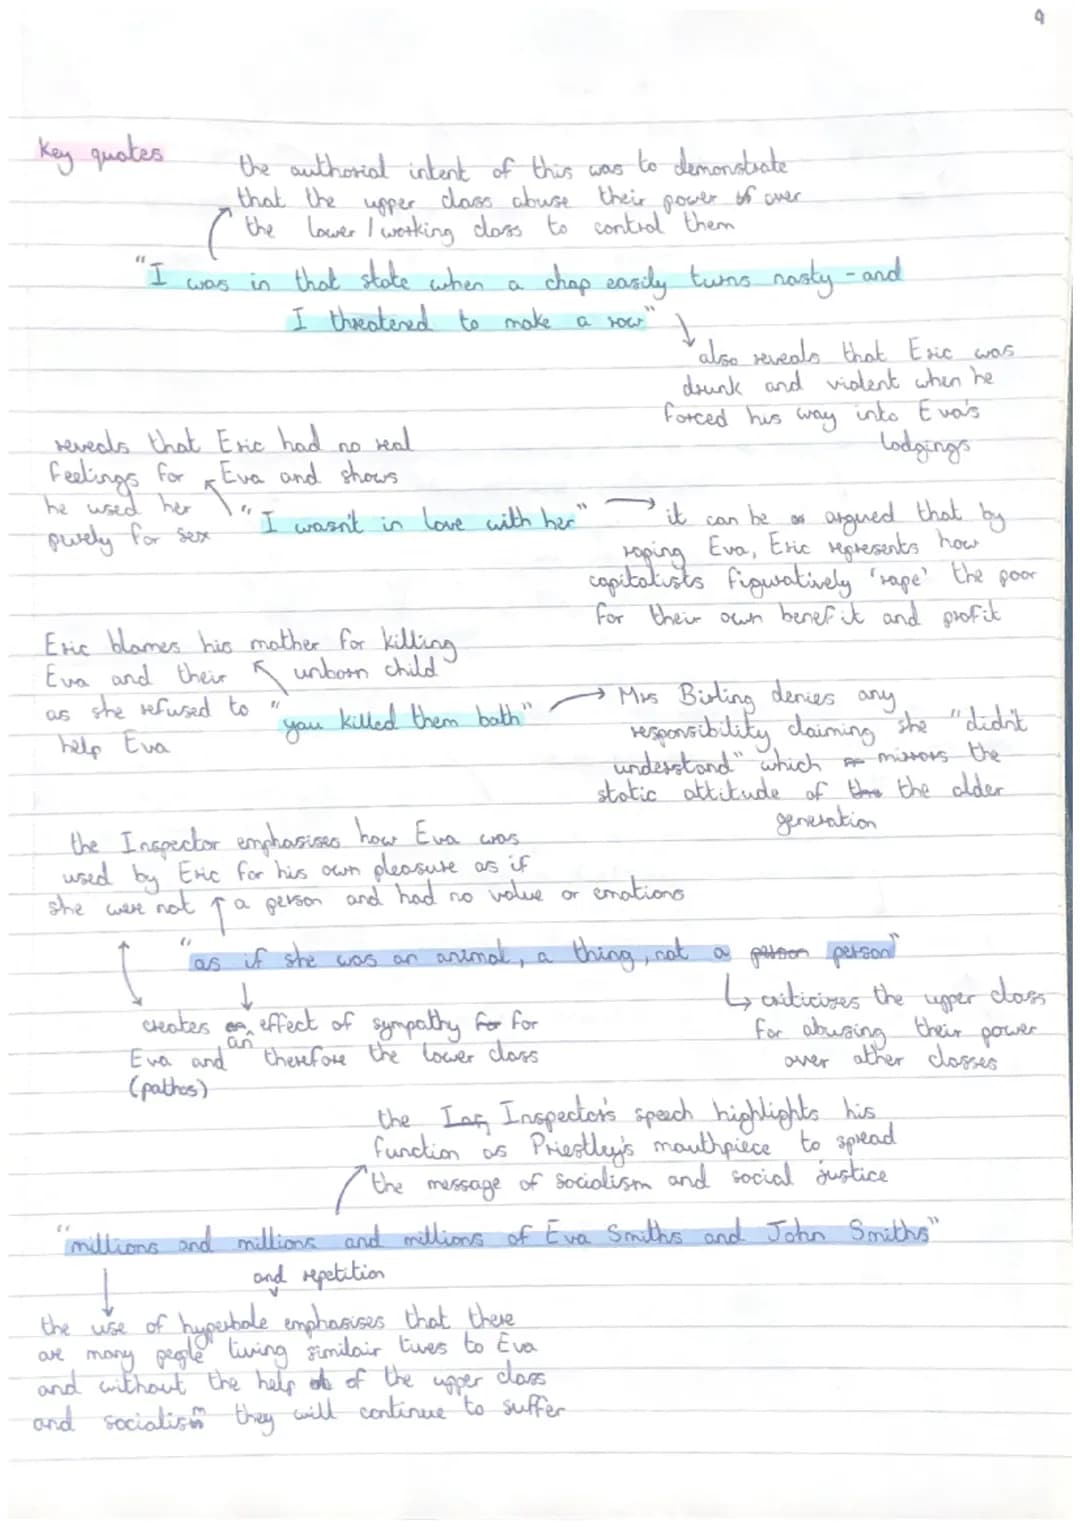 9
Key quotes
the authorial intent of this was to demonstrate
that the upper class abuse their power of over
the lower / working class to control them
"I was in that state when a chap easily turns nasty - and
I threatened to make a row"
also reveals that Eric was
drunk and violent when he
forced his way into Eva's
lodgings
reveals that Eric had no real
feelings for Eva and shows
he used her
purely for sex
"I wasn't in love with her"
it can be argued that by
raping Eva, Eric represents how
capitalists figuratively 'rape' the poor
for their own benefit and profit
Eric blames his mother for killing
Eva and their unborn child
as she refused to
help Eva
"you killed them both"
Mrs Birling denies any
responsibility claiming she "didn't
understand" which mirrors the
static attitude of the the older
generation
the Inspector emphasises how Eva was
used by Eric for his own pleasure as if
she were not a person and had no value or emotions
"as if she was an animal, a thing, not a person person"
creates an effect of sympathy for for
Eva and therefore the lower class
(pathos)
criticizes the upper class
for abusing their power
over other classes
the Ins Inspector's speech highlights his
function as Priestley's mouthpiece to spread
the message of socialism and social justice
"millions and millions and millions of Eva Smiths and John Smiths"
and repetition
the use of hyperbole emphasises that there
are many people living similair lives to Eva
and without the help of of the upper class
and socialism they will continue to suffer